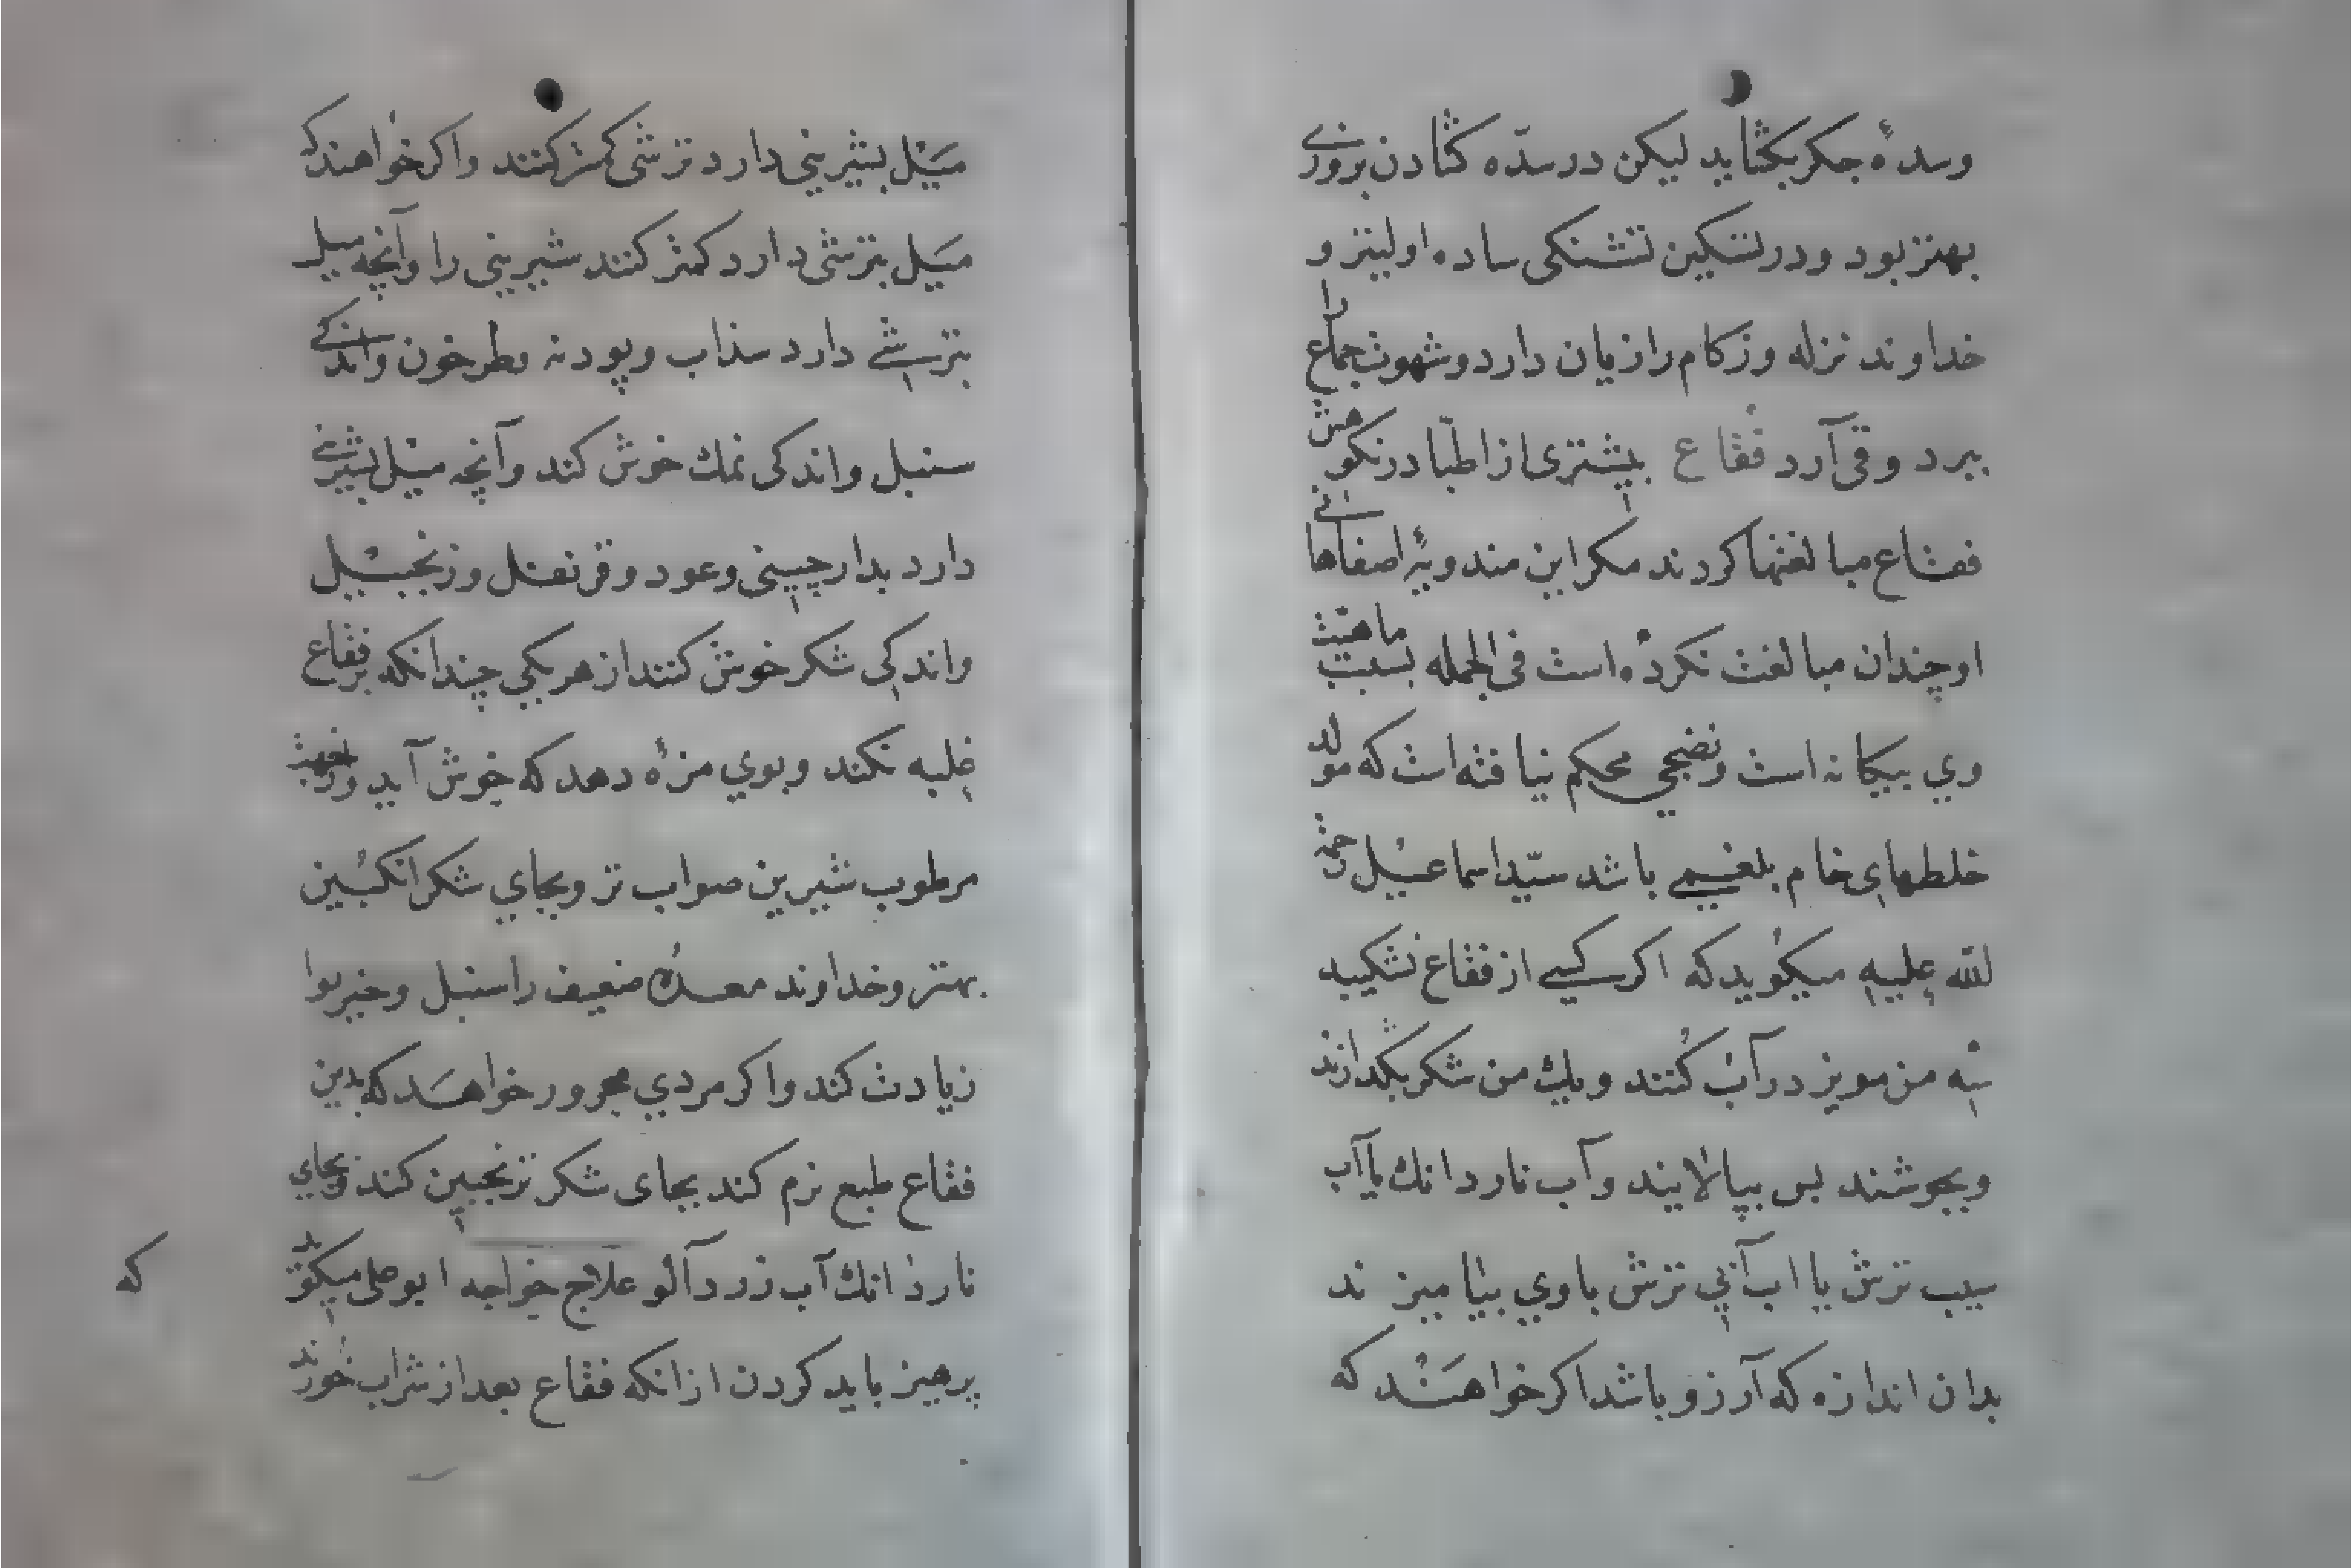 وسدهٔ جکر بکشاید لیکن در سدّه کشادن بزوری
بهتر بود و در تسکین تشنکی ساده اولیتر و
خداوند نزله وزکام را زیان دارد وشهوت جماع را
ببرد وقی آرد فقاع بیشتری از اطبّا در نکوهش
فقاع مبالغتها کردند مکر ابن مندویهٔ اصفاهانی
او چندان مبالغت نکرده است فی الجمله بسبب ماهیت
وی بیکانه است ونضجی محکم نیافته است که مولد
خلطهای خام بلغمی باشد سیّد اسماعیل رحمة
الله علیه میکوید که اکر کسی از فقاع نشکیبد
سه من مویز در آب کنند ویك من شکر بکدازند
وبجوشند بس بپالایند وآب ناردانك یا آب
سیب ترش یا اب آبی ترش با وی بیامیزند
بدان اندازه که آرزو باشد اکر خواهند که
میل بشیرینی دارد ترشی کمتر کنند واکر خواهند که
میل بترشی دارد کمتر کنند شیرینی را وآنچه میل
بترشی دارد سذاب وپودنه وطرخون واندکی
سنبل واندکی نمك خوش کند وآنچه میل بشیرینی
دارد بدارچینی وعود وقرنفل وزنجبیل
واندکی شکر خوش کنند از هر یکی چندانکه بر فقاع
غلبه نکند وبوی مزه دهد که خوش آید وزجهت
مرطوب شیرین صواب تر وبجای شکر انکبین
بهتر وخداوند معدهٔ ضعیف را سنبل وخیربوا
زیادت کند واکر مردی محرور خواهد که بدین
فقاع طبع نرم کند بجای شکر ترنجبین کند وبجای
ناردانك آب زردآلو علاج خواجه ابوعلی میکوید
که
پرهیز باید کردن ازانکه فقاع بعد از شراب خورند